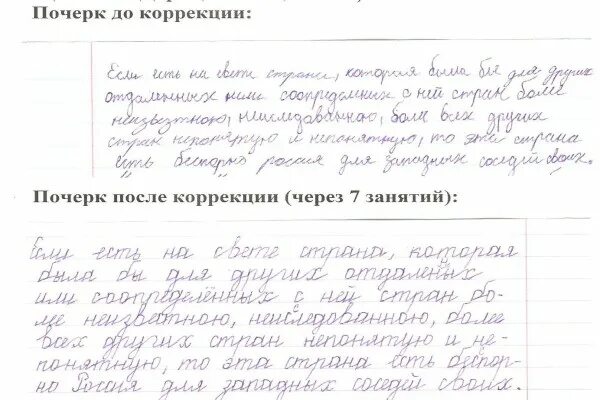 Почерк до коррекции:
Если есть на свете страна, которая была бы для других
отдаленных или соопределных с ней стран боле
неизвезтною, неиследованою, боле всех других
стран непонятую и непонятную, то эта страна
есть беспорно россия для западных соседей своих.
Почерк после коррекции (через 7 занятий):
Если есть на свете страна, которая
была бы для других отдалённых
или соопределённых с ней стран бо-
лее неизватною, неиследованною, более
всех других стран непонятую и не-
понятную, то эта страна есть беспор-
но Россия для западных соседей своих.